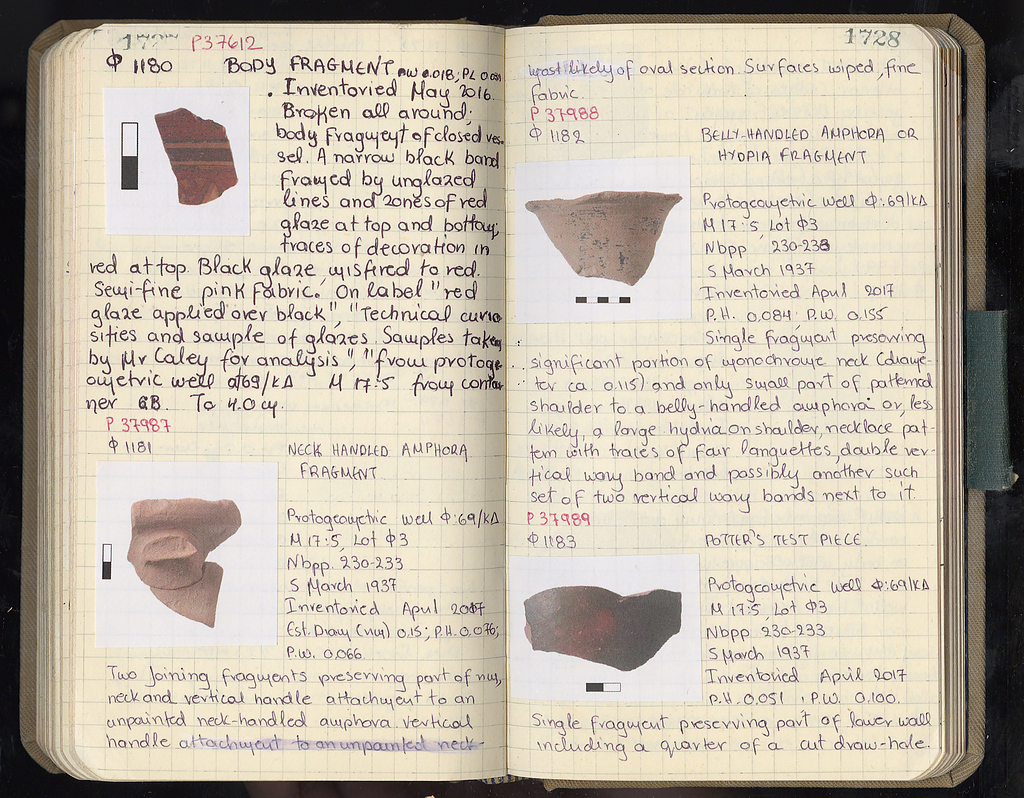 P37612
Φ 1180 BODY FRAGMENT P.W 0.018; P.L 0.051
. Inventoried May 2016.
Broken all around;
body fragment of closed ves-
sel. A narrow black band
framed by unglazed
lines and zones of red
glaze at top and bottom;
traces of decoration in
red at top. Black glaze, misfired to red.
Semi-fine pink fabric. On label "red
glaze applied over black", "Technical curio
sities and sample of glazes. Samples taken
by Mr Caley for analysis", "from protoge
ometric well at 69/ΚΔ - M 17:5 from contai
ner GB. To 4.0 cm.
P 37987
Φ 1181 NECK HANDLED AMPHORA
FRAGMENT
Protogeometric well Φ:69/ΚΔ
M 17:5, Lot Φ3
Nbpp. 230-233
5 March 1937
Inventoried April 2017
Est. Diam (rim) 0.15; P.H. 0.076;
P.W. 0.066.
Two joining fragments preserving part of rim,
neck and vertical handle attachment to an
unpainted neck-handled amphora vertical
handle attachment to an unpainted neck-
1728
most likely of oval section. Surfaces wiped, fine
fabric.
P 37988
Φ 1182 BELLY-HANDLED AMPHORA OR
HYDRIA FRAGMENT
Protogeometric well Φ:69/ΚΔ
M 17:5, Lot Φ3
Nbpp 230-233
5 March 1937
Inventoried April 2017
P.H. 0.084 P.W. 0.155
Single fragment preserving
significant portion of monochrome neck (diame-
ter ca. 0.115) and only small part of patterned
shoulder to a belly-handled amphora or, less
likely, a large hydria on shoulder, necklace pat-
tern with traces of four languettes, double ver-
tical wavy band and possibly another such
set of two vertical wavy bands next to it
P 37989
Φ 1183 POTTER'S TEST PIECE
Protogeometric well Φ:69/ΚΔ
M 17:5, Lot Φ3
Nbpp 230-233
5 March 1937
Inventoried April 2017
P.H. 0.051 P.W. 0.100.
Single fragment preserving part of lower wall
including a quarter of a cut draw-hole.